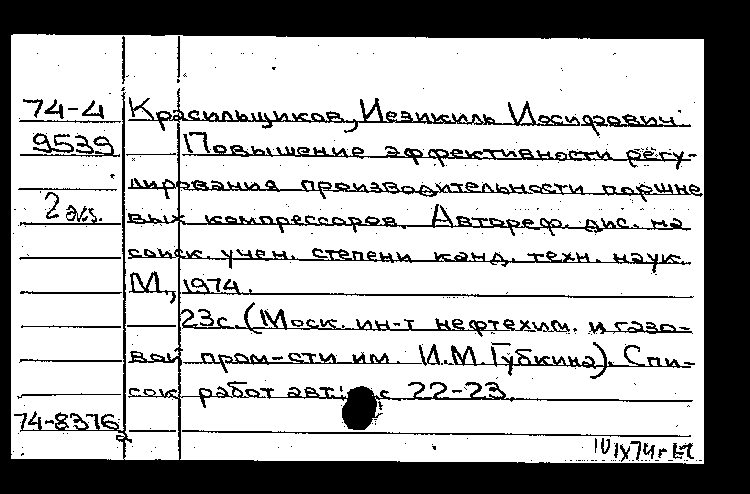 74-4 Красильщиков, Иезикиль Иосифович.
9539 Повышение эффективности регу-
лирования производительности поршне
2 экз. вых компрессоров. Автореф. дис. на
соиск. учен. степени канд. техн. наук.
М., 1974.
23с. (Моск. ин-т нефтехим. и газо-
вой пром-сти им. И.М. Губкина). Спи-
сок работ авт. с 22-23.
74-8376